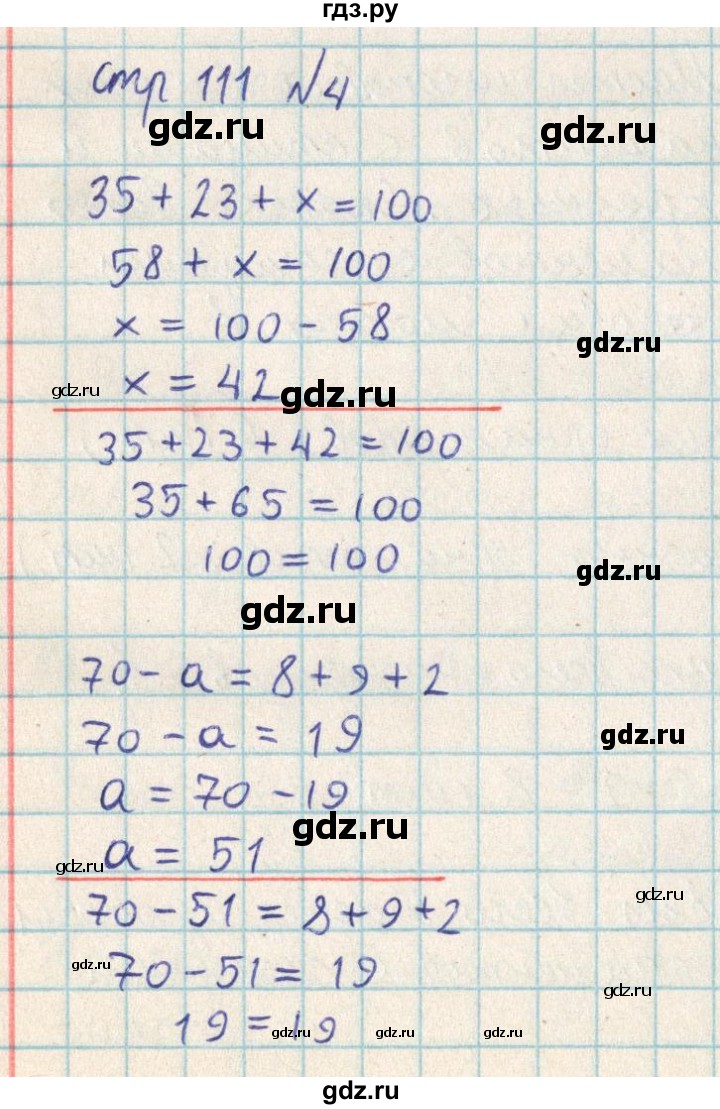 гдз.ру
стр 111 №4
gdz.ru
gdz.ru
35 + 23 + x = 100
58 + x = 100
x = 100 - 58
gdz.ru
gdz.ru
x = 42
gdz.ru
35 + 23 + 42 = 100
35 + 65 = 100
100 = 100
gdz.ru
gdz.ru
70 - a = 8 + 9 + 2
70 - a = 19
gdz.ru
a = 70 - 19
gdz.ru
a = 51
gdz.ru
gdz.ru
70 - 51 = 8 + 9 + 2
gdz.ru
70 - 51 = 19
gdz.ru
19 = 19
gdz.ru
gdz.ru
gdz.ru
gdz.ru